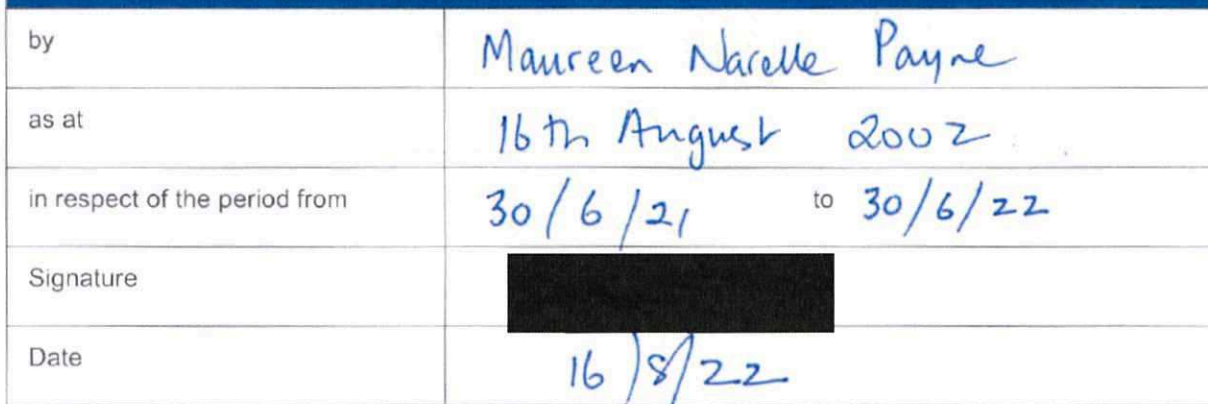 by Maureen Narelle Payne
as at 16th August 2002
in respect of the period from 30/6/21 to 30/6/22
Signature
Date 16/8/22